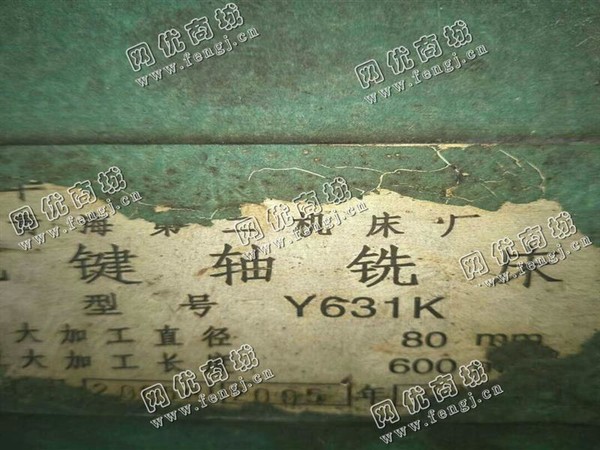 海第 机床厂
键轴铣床
型号 Y631K
大加工直径 80 mm
大加工长 600
2005 年
网优商城
www.fengj.cn
网优商城
www.fengj.cn
网优商城
www.fengj.cn
网优商城
www.fengj.cn
网优商城
www.fengj.cn
网优商城
www.fengj.cn